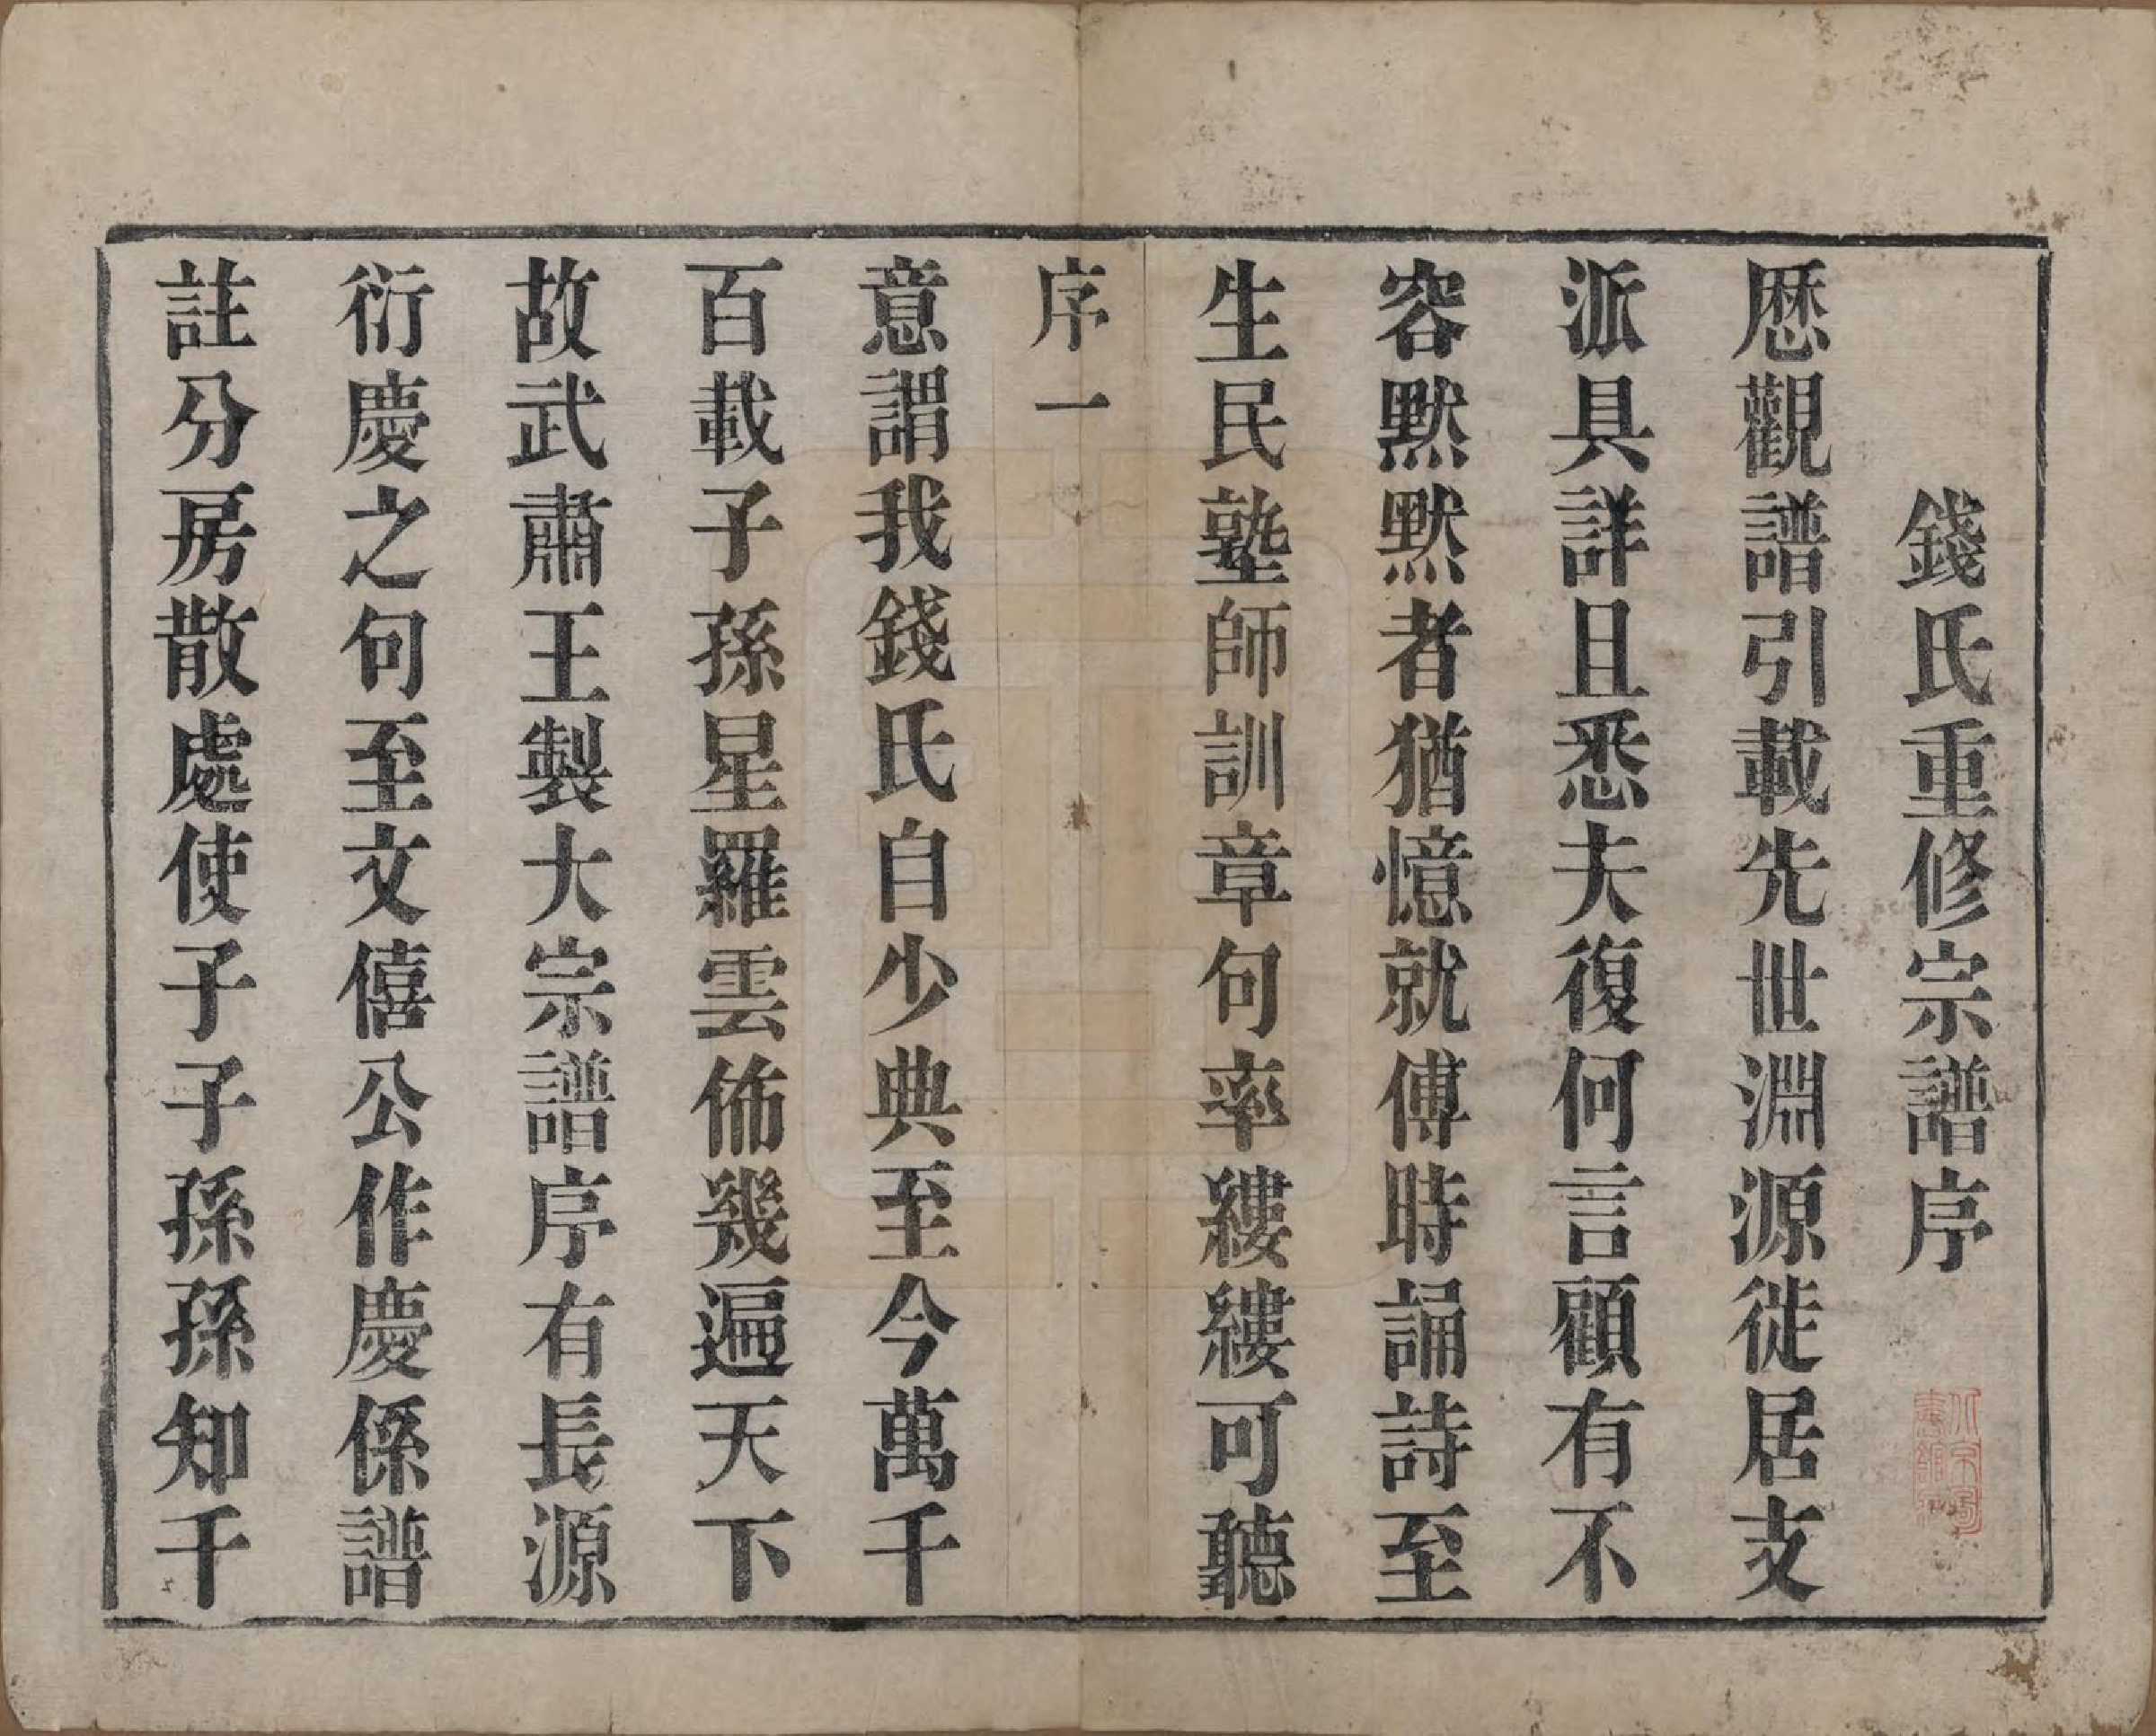 錢氏重修宗譜序
歷觀譜引載先世淵源徙居支
派具詳且悉夫復何言顧有不
容黙黙者猶憶就傅時誦詩至
生民塾師訓章句率縷縷可聽
序一
意謂我錢氏自少典至今萬千
百載子孫星羅雲佈幾遍天下
故武肅王製大宗譜序有長源
衍慶之句至文僖公作慶係譜
註分房散處使子子孫孫知千